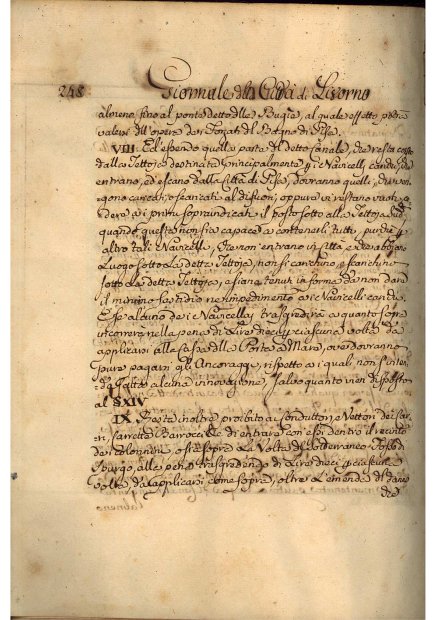 248 Giornale della Città di Livorno
almeno fino al ponte detto delle Bugie, al quale effetto potrà
valersi dell'opera dei Forzati del Bagno di Pisa.
VIII Ed essendo quella parte del detto Canale, che resta
dalla Tettoja destinata principalmente Navicelli, che
entrano, ed escano dalla Città di Pisa, dovranno quelli, che
gono carichi, o scaricati al di fuori, oppure vi restano vuoti
dere ai primi sopraindicati il posto sotto alla Tettoja
quando questa non sia capace a contenerli tutti, purchè
altro tali Navicelli, che non entrano in Città
Luogo sotto la detta Tettoja, non si carichino, e scarichino
sotto la detta Tettoja, e siano tenuti in forma da non dare
il minimo fastidio, ne impedimento ai Navicelli
E se alcuno dei Navicellaj trasgredirà a quanto sopra
incorrerà nella pena di Lire dieci ciascuna volta da
applicarsi alla Cassa della Porta a Mare, ove dovranno
pure pagarsi gl'Ancoraggi, rispetto ai quali non s'inten-
da fatta alcuna innovazione, salvo quanto vien disposto
al §XIV
IX Resta inoltre proibito ai Conduttori, e Vetturi dei Car-
ri, Carrette, Barrocci, di entrare con essi dentro il recinto
dei colonnini sopra la Volta del sotterraneo Fosso di
Borgo, alle pene trasgredendo di Lire dieci ciascuna
Volta, da applicarsi come sopra, oltre l'emenda del danno